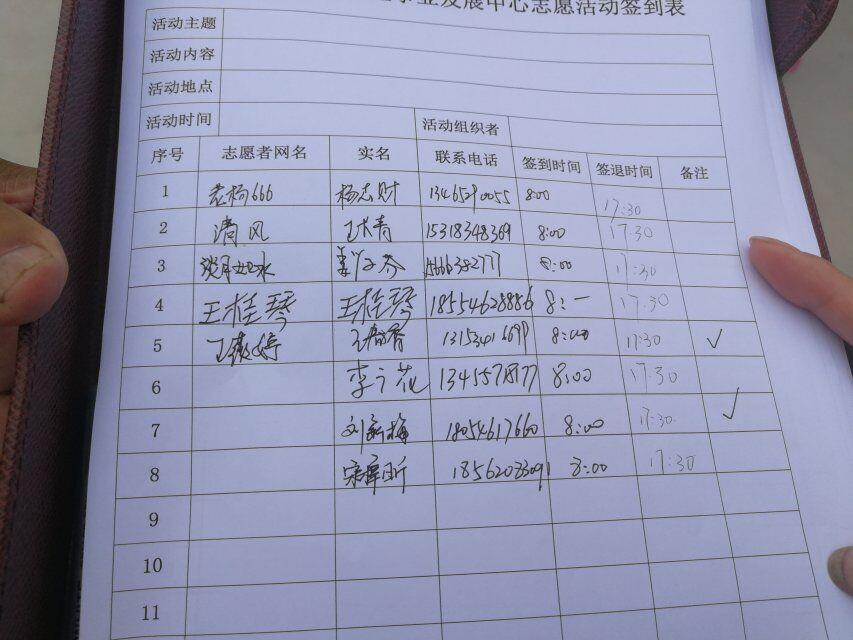 业发展中心志愿活动签到表
活动主题
活动内容
活动地点
活动时间 活动组织者
序号 志愿者网名 实名 联系电话 签到时间 签退时间 备注
1 老杨666 杨志财 13465290055 8:00 17:30
2 清风 15318348369 8:00 17:30
3 8:00 17:30
4 王桂琴 王桂琴 18554628886 8:一 17:30
5 8:00 17:30 ✓
6 13455718177 8:00 17:30
7 18054617660 8:00 17:30 ✓
8 18562083091 8:00 17:30
9
10
11